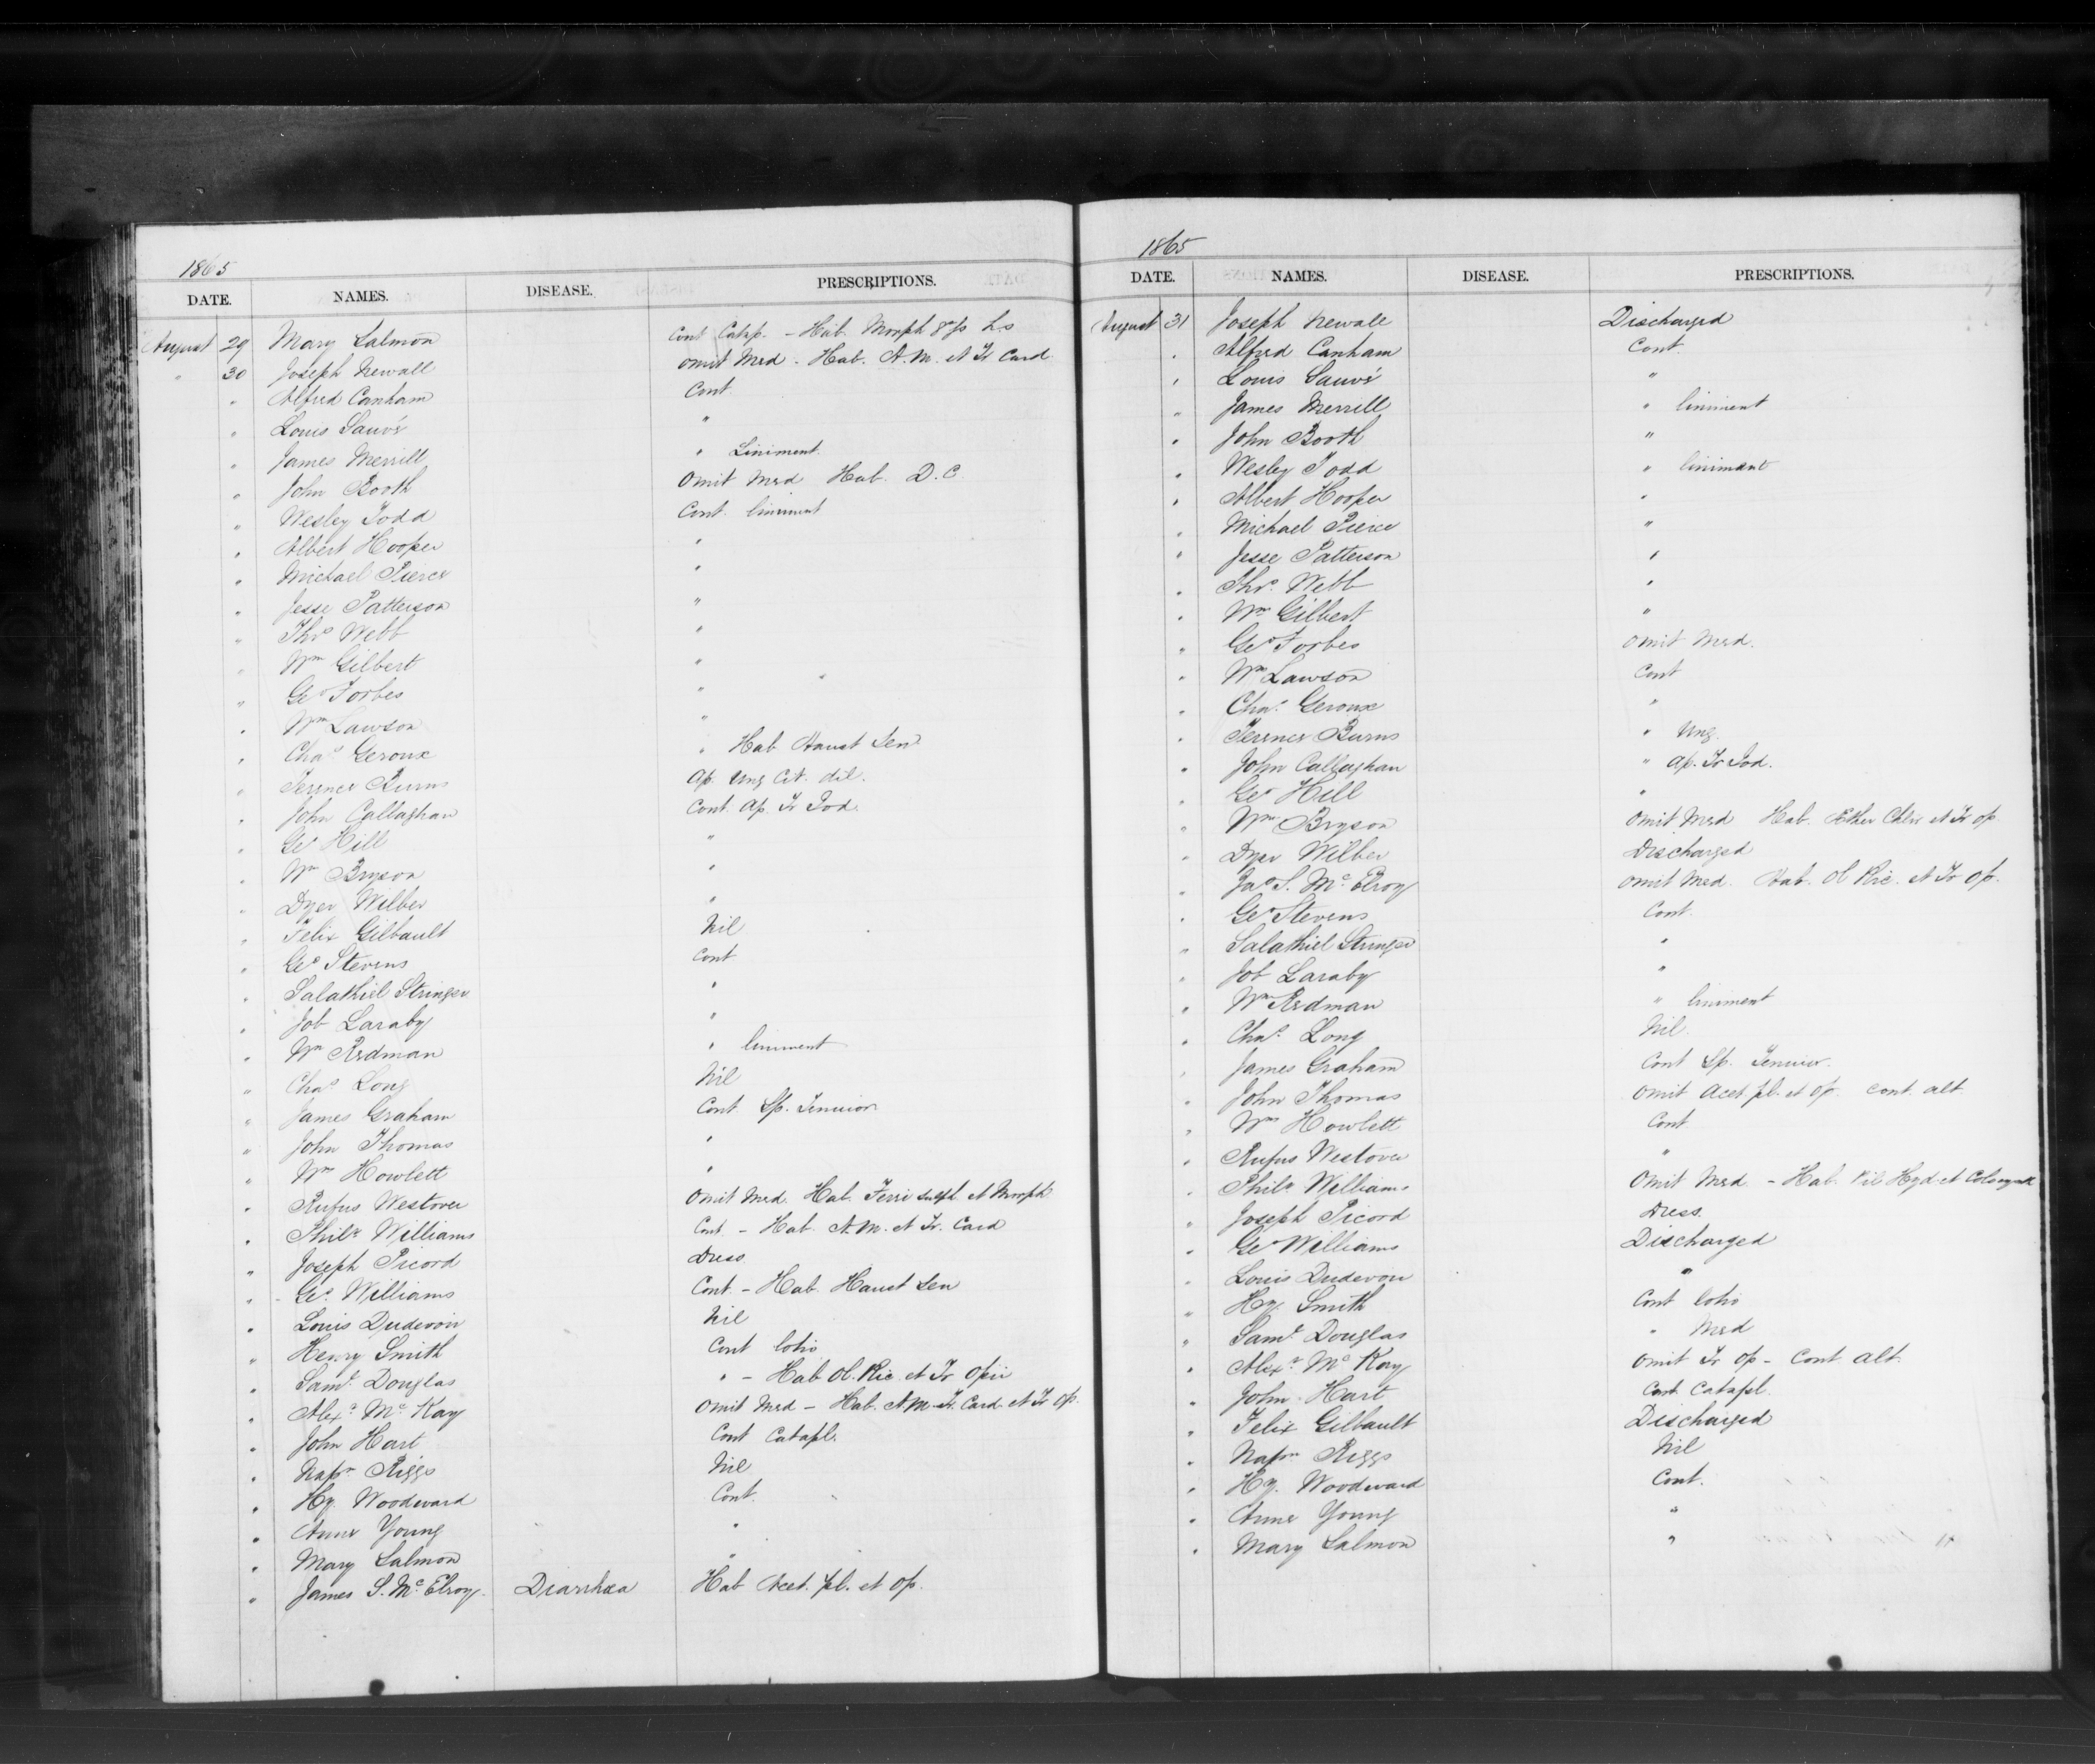 1865
DATE. NAMES. DISEASE. PRESCRIPTIONS.
August 29 Mary Salmon Cont Catap. - Hab. Morph hs
" 30 Joseph Newall Omit Med - Hab. A.M. et Tr Card
" Alfred Canham Cont.
" Louis Sauvé "
" James Merrill " Liniment.
" John Booth Omit Med Hab. D.C
" Wesley Todd Cont. liniment
" Albert Hooper "
" Michael Pierce "
" Jesse Patterson "
" Thos Webb "
" Wm Gilbert "
" Geo Forbes "
" Wm Lawson "
" Chas Geroux " Hab Haust Sen
" Terence Burns Ap Ung Cit. dil.
" John Callaghan Cont. Ap. Tr Iod.
" Geo Hill "
" Wm Bryson "
" Dyer Wilber "
" Felix Gilbault Nil
" Geo Stevens Cont
" Salathiel Stringer "
" Job Laraby "
" Wm Redman " liniment
" Chas Long Nil
" James Graham Cont Sp. Tenuior
" John Thomas "
" Wm Howlett "
" Rufus Westover Omit Med. Hab. Ferri sulph et Morph
" Phile Williams Cont - Hab. A.M. et Tr. Card
" Joseph Picord Dress.
" Geo. Williams Cont. - Hab. Haust Sen
" Louis Dudevoir Nil
" Henry Smith Cont lotio
" Saml Douglas " - Hab Ol. Ric et Tr Opii
" Alexr McKay Omit Med - Hab. A.M. Tr. Card. et Tr Op.
" John Hart Cont Catapl.
" Napn Riggs Nil
" Hy. Woodward Cont.
" Anne Young "
" Mary Salmon "
" James S. McElroy. Diarrhœa Hab Acet. pl. et op.
1865
DATE. NAMES. DISEASE. PRESCRIPTIONS.
August 31 Joseph Newall Discharged
" Alfred Canham Cont.
" Louis Sauvé "
" James Merrill " liniment
" John Booth "
" Wesley Todd " liniment
" Albert Hooper "
" Michael Pierce "
" Jesse Patterson "
" Thos. Webb "
" Wm Gilbert "
" Geo Forbes Omit Med.
" Wm Lawson Cont
" Chas. Geroux "
" Terence Burns " Ung.
" John Callaghan " Ap. Tr Iod.
" Geo Hill "
" Wm Bryson Omit Med Hab. Æther Chlor et Tr op
" Dyer Wilber Discharged
" Jas S. McElroy Omit Med. Hab. Ol Ric. et Tr Op.
" Geo Stevens Cont.
" Salathiel Stringer "
" Job Laraby "
" Wm Redman " liniment
" Chas. Long Nil.
" James Graham Cont Sp. Tenuior.
" John Thomas Omit Acet. pl. et op. cont. alt.
" Wm Howlett Cont
" Rufus Westover "
" Phile Williams Omit Med - Hab. Pil Hyd et Colocynth
" Joseph Picord Dress.
" Geo Williams Discharged
" Louis Dudevoir "
" Hy. Smith Cont lotio
" Saml Douglas " Med
" Alexr McKay Omit Tr Op - Cont alt.
" John Hart Cont. Catapl.
" Felix Gilbault Discharged
" Napn Riggs Nil
" Hy. Woodward Cont.
" Anne Young "
" Mary Salmon "